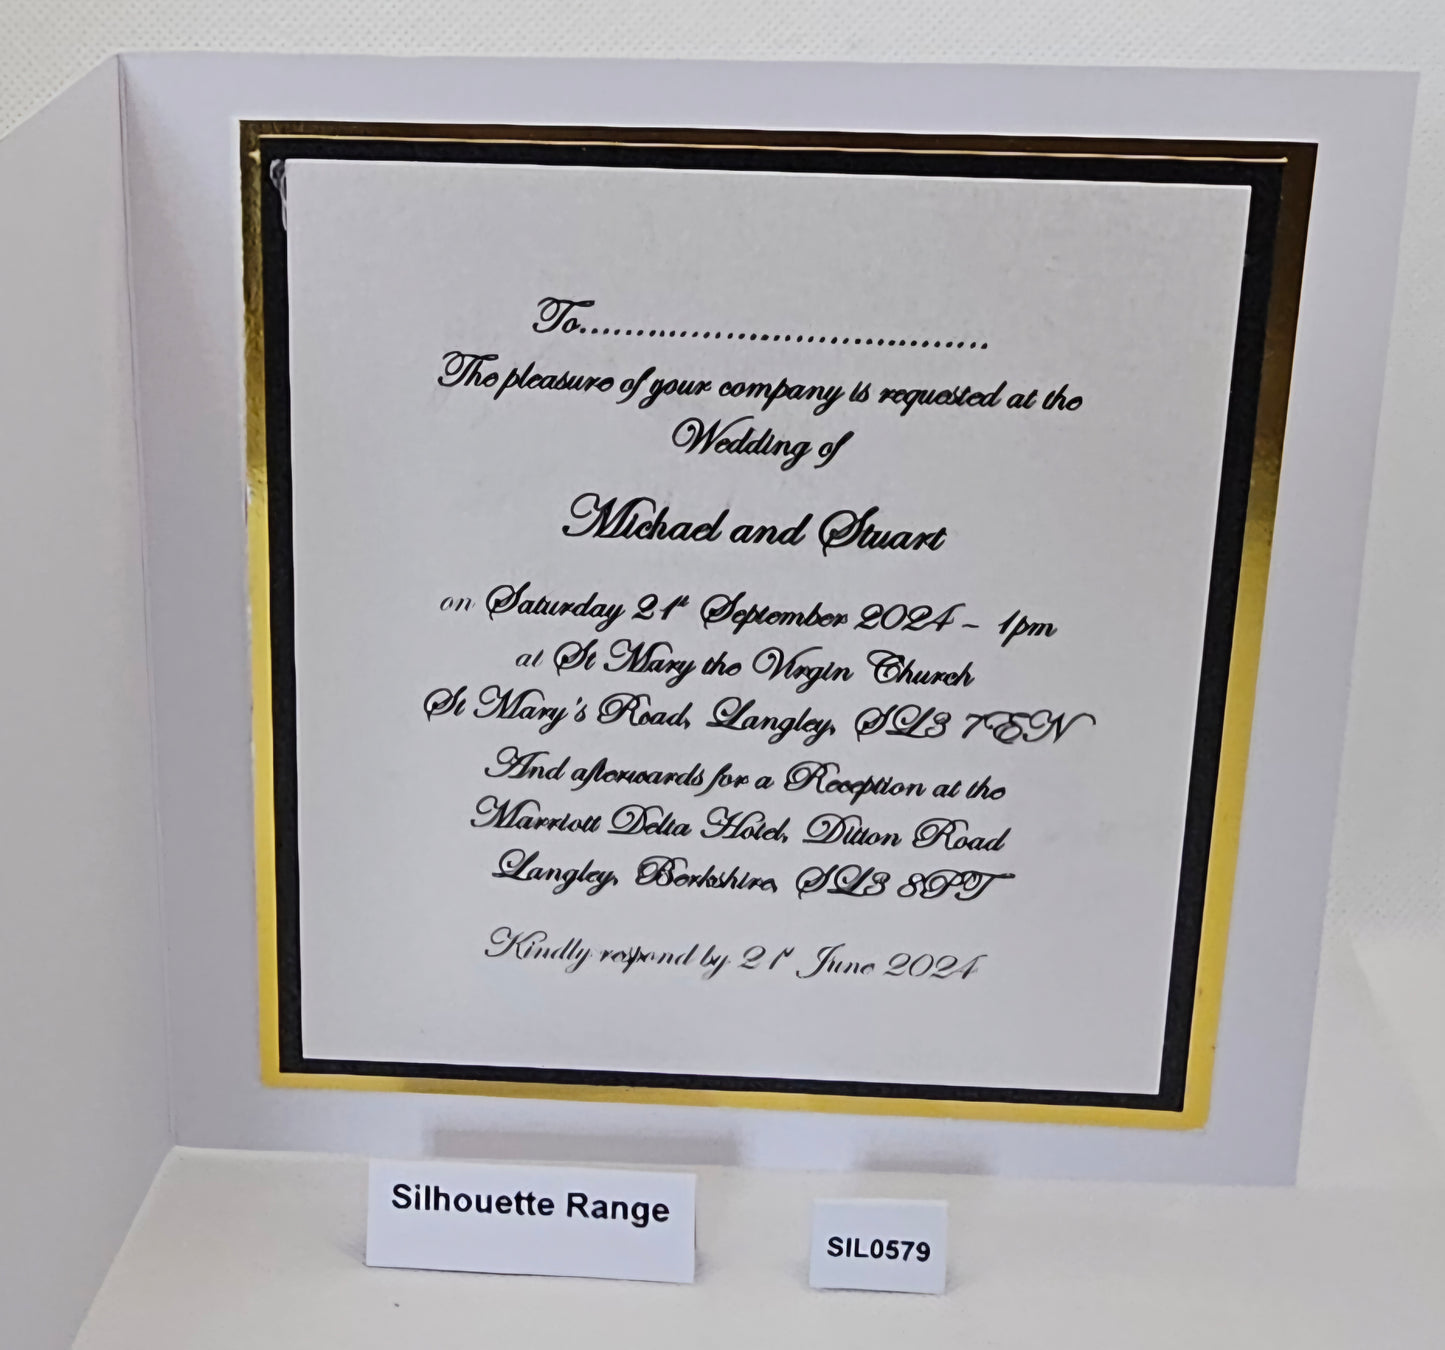 To....................................
The pleasure of your company is requested at the
Wedding of
Michael and Stuart
on Saturday 21st September 2024 - 1pm
at St Mary the Virgin Church
St Mary's Road, Langley, SL3 7EN
And afterwards for a Reception at the
Marriott Delta Hotel, Ditton Road
Langley, Berkshire, SL3 8PT
Kindly respond by 21st June 2024
Silhouette Range
SIL0579